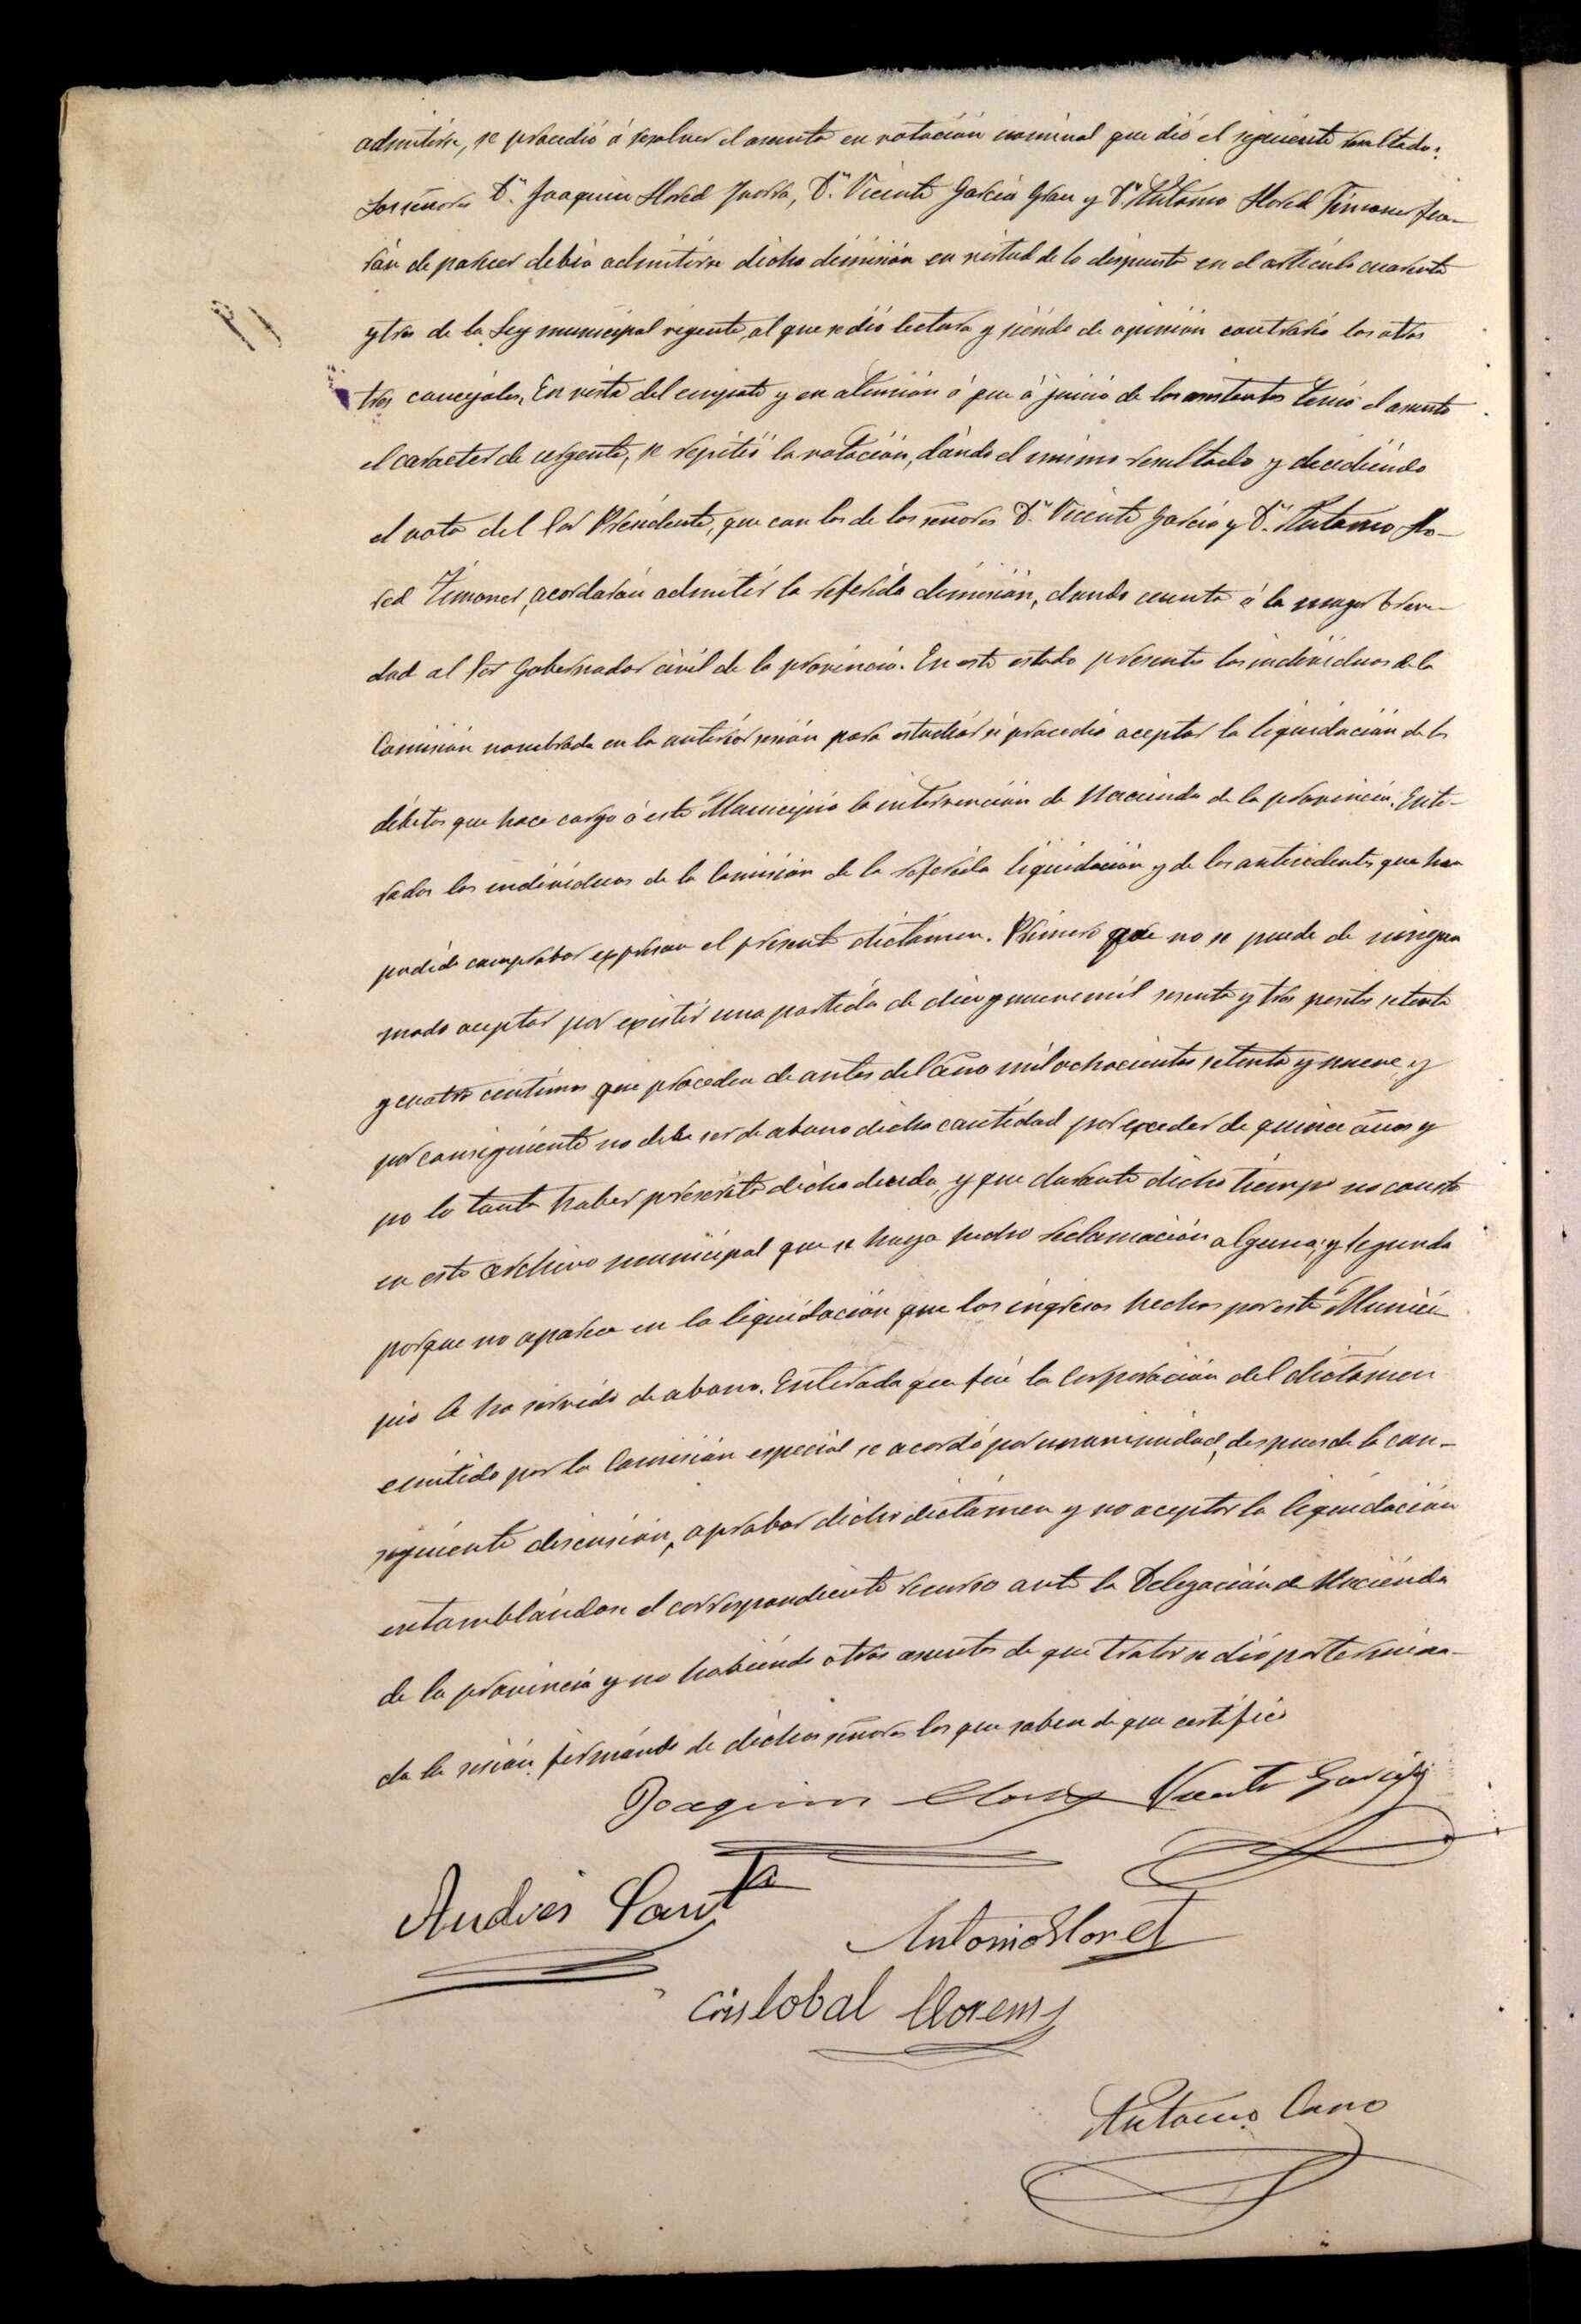 admitirse, se procedió á resolver el asunto en votación nominal que dió el siguiente resultado:
Los señores Dn. Joaquin Llored Yvorra, Dn. Vicente García Grau y Dn. Antonio Llored Timoner fue-
ron de parecer debia admitirse dicha dimisión en virtud de lo dispuesto en el artículo cuarenta
y tres de la Ley municipal vigente, al que se dió lectura y siendo de opinión contraria los otros
tres concejales. En vista del empate y en atención á que á juicio de los asistentes tenia el asunto
el caracter de urgente, se repitió la votación, dando el mismo resultado y decidiendo
el voto del Sor Presidente, que con los de los señores Dn. Vicente García y Dn. Antonio Llo-
red Timoner, acordaron admitir la referida dimisión, dando cuenta á la mayor breve-
dad al Sor Gobernador civil de la provincia. En este estado presente los individuos de la
Comisión nombrada en la anterior sesión para estudiar si procedia aceptar la liquidación de los
débitos que hace cargo á este Municipio la intervención de Hacienda de la provincia. Ente-
rados los individuos de la Comisión de la referida liquidación y de los antecedentes que han
podido comprobar expresan el presente dictámen. Primero que no se puede de ningun
modo aceptar por existir una partida de diez y nueve mil sesenta y tres pesetas setenta
y cuatro centimos que proceden de antes del año mil ochocientos setenta y nueve, y
por consiguiente no debe ser de abono dicha cantidad por exceder de quince años y
po lo tanto haber prescrito dicha deuda, y que durante dicho tiempo no consta
en este archivo municipal que se haya hecho reclamación alguna; y segunda
porque no aparece en la liquidación que los ingresos hechos por este Munici
pio le ha servido de abono. Enterada que fué la Corporación del dictámen
emitido por la Comisión especial se acordó por unanimidad, despues de la con-
siguiente discusión, aprobar dicho dictámen y no aceptar la liquidación
entamblándose el correspondiente recurso ante la Delegación de Hacienda
de la provincia y no habiendo otros asuntos de que tratar se dió por termina-
da la sesión, firmando de dichos señores los que saben de que certifico
Joaquin Llored Vicente García
Andrés Santa
Antonio Lloret
Cristobal Llorens
Antonio Cano